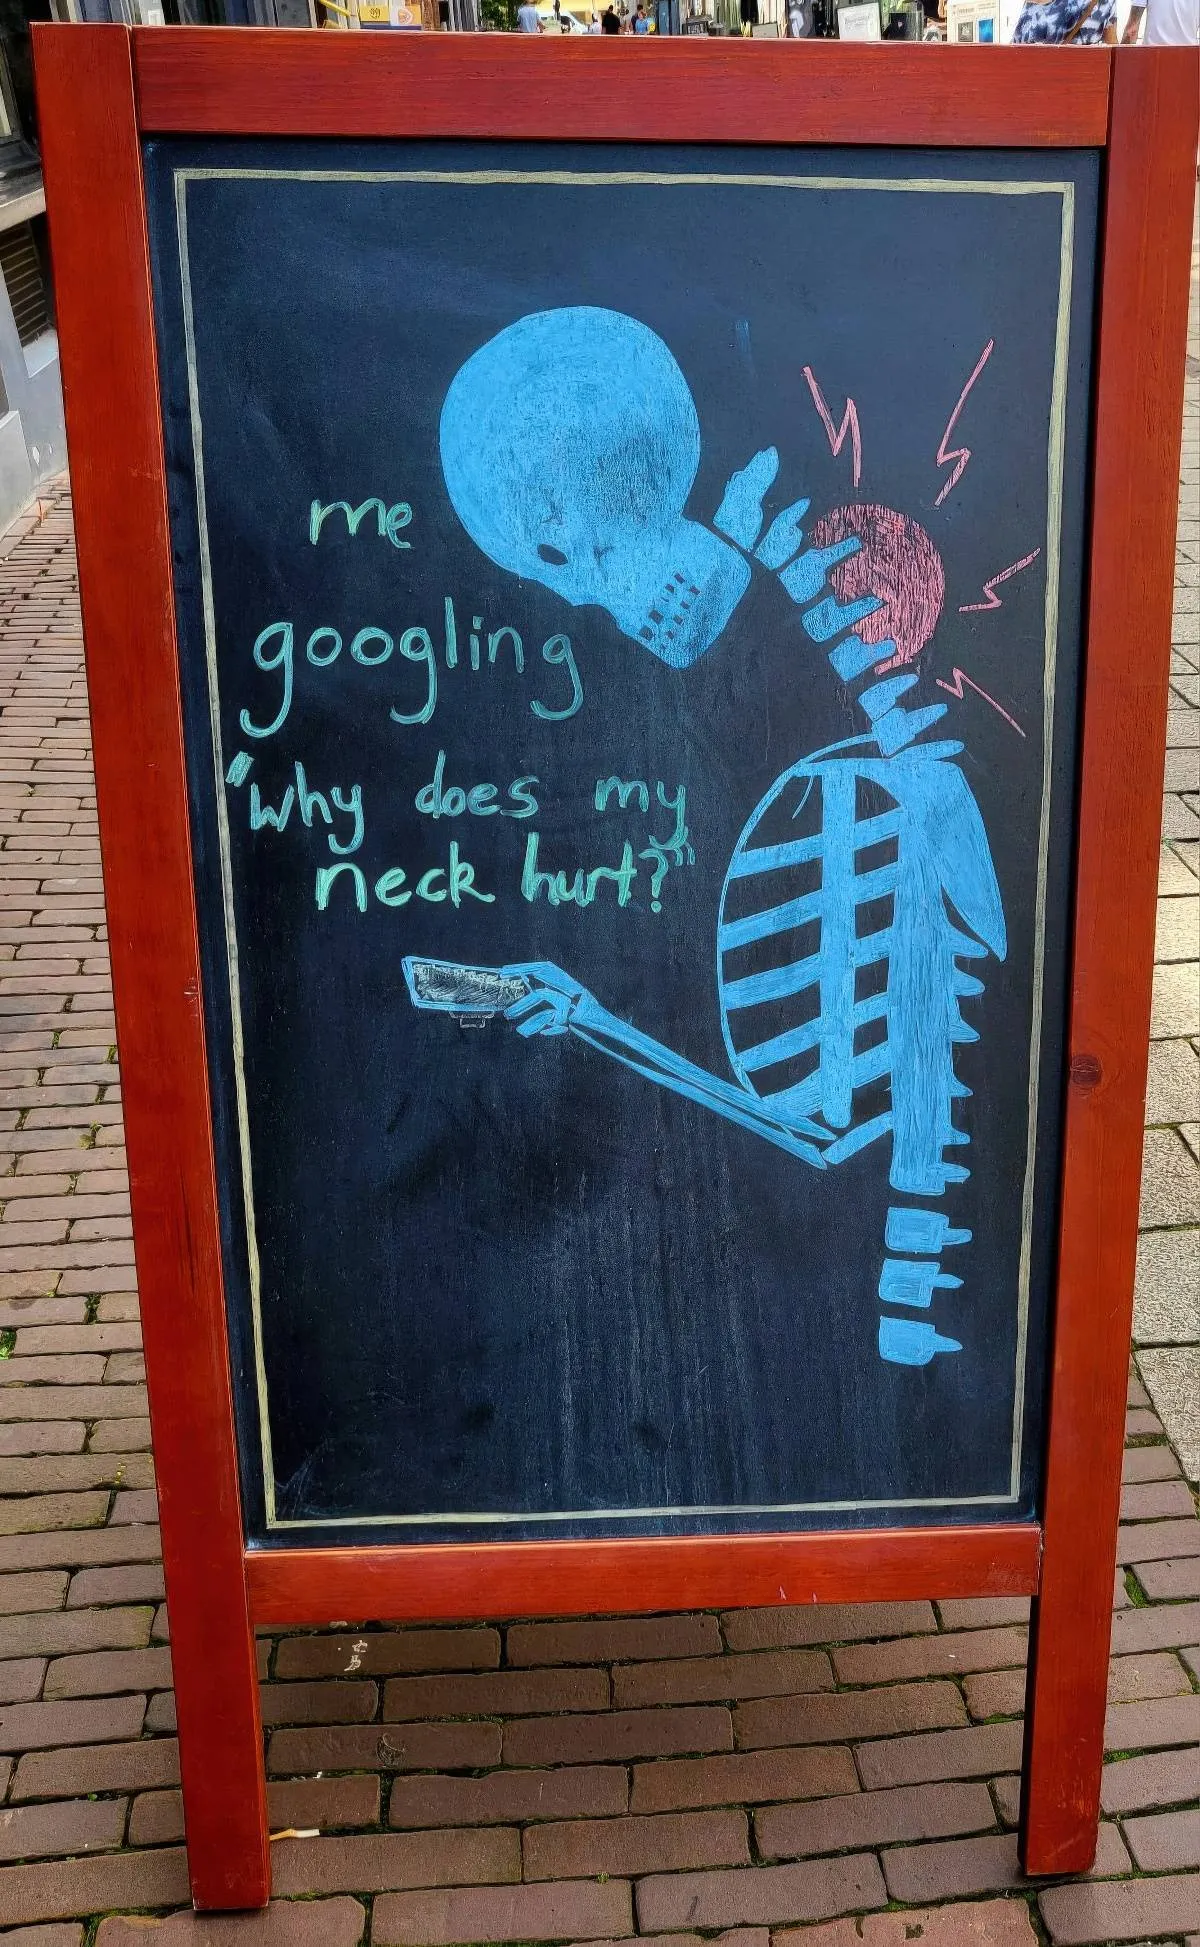 me
googling
"why does my
neck hurt?"